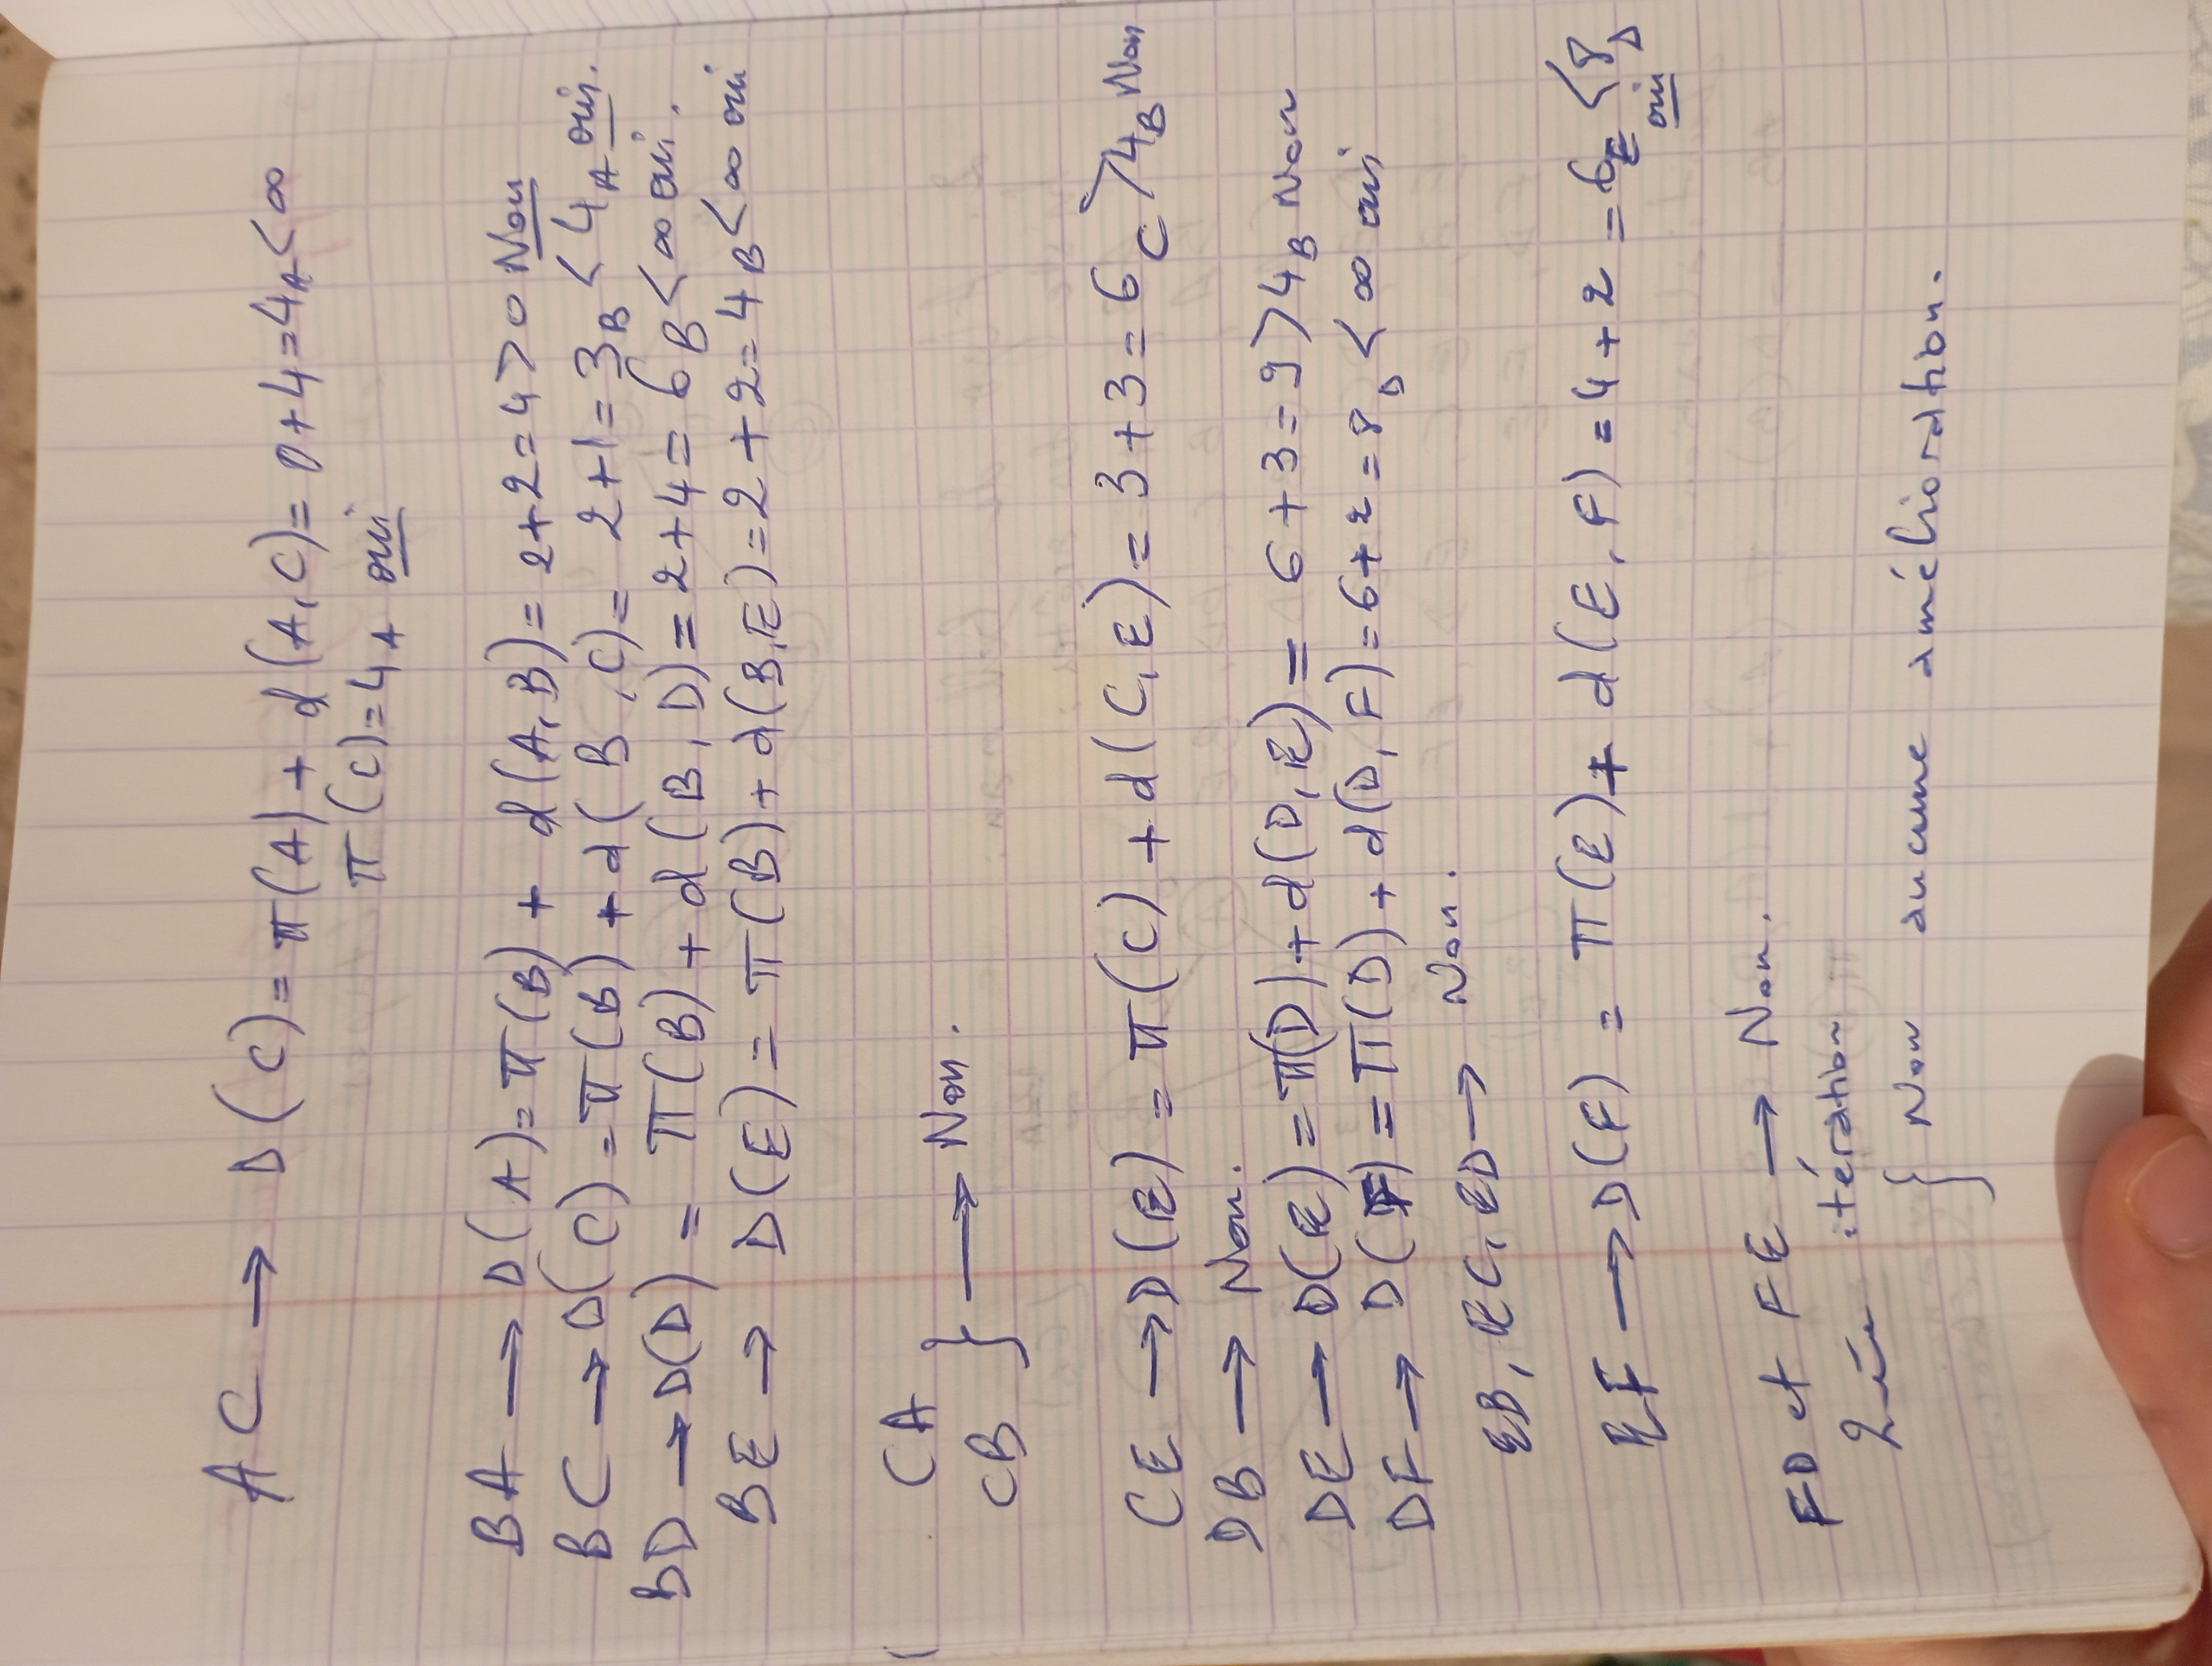 AC → D(C) = π(A) + d(A,C) = 0+4 = 4A < ∞
π(C) = 4A oui
BA → D(A) = π(B) + d(A,B) = 2+2 = 4 > 0 Non
BC → D(C) = π(B) + d(B,C) = 2+1 = 3B < 4A oui.
BD → D(D) = π(B) + d(B,D) = 2+4 = 6B < ∞ oui.
BE → D(E) = π(B) + d(B,E) = 2+2 = 4B < ∞ oui
CA
CB } → Non.
CE → D(E) = π(C) + d(C,E) = 3+3 = 6C > 4B Non
DB → Non.
DE → D(E) = π(D) + d(D,E) = 6+3 = 9 > 4B Non
DF → D(F) = π(D) + d(D,F) = 6+2 = 8D < ∞ oui
EB, EC, ED → Non.
EF → D(F) = π(E) + d(E,F) = 4+2 = 6E < 8D
oui
FD et FE → Non.
2ième itération
} Non aucune amélioration.